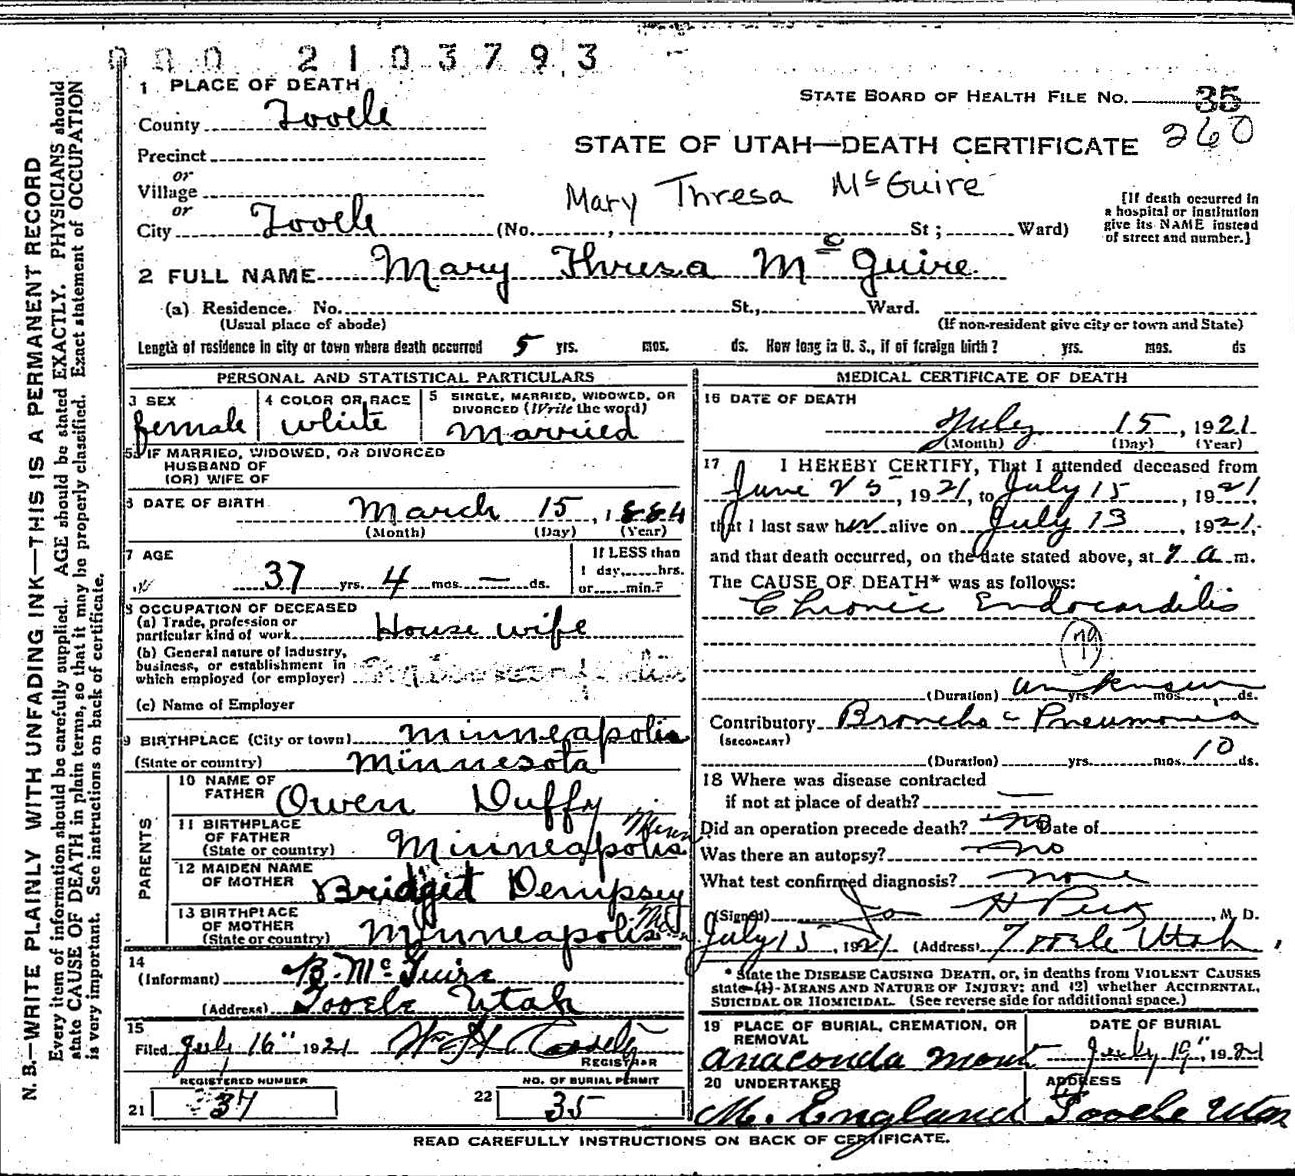 000 2103793
1 PLACE OF DEATH
STATE BOARD OF HEALTH FILE NO. 35
County Tooele
260
STATE OF UTAH—DEATH CERTIFICATE
Precinct
or
Village
Mary Thresa McGuire
or
City Tooele (No. , St ; Ward)
[If death occurred in
a hospital or institution
give its NAME instead
of street and number.]
2 FULL NAME Mary Thresa McGuire
(a) Residence. No. St., Ward.
(Usual place of abode) (If non-resident give city or town and State)
Length of residence in city or town where death occurred 5 yrs. mos. ds. How long in U. S., if of foreign birth? yrs. mos. ds
PERSONAL AND STATISTICAL PARTICULARS
3 SEX female
4 COLOR OR RACE white
5 SINGLE, MARRIED, WIDOWED, OR
DIVORCED (Write the word)
Married
5a IF MARRIED, WIDOWED, OR DIVORCED
HUSBAND OF
(OR) WIFE OF
6 DATE OF BIRTH March 15, 1884
(Month) (Day) (Year)
7 AGE
37 yrs. 4 mos. — ds.
If LESS than
1 day, hrs.
or min.?
8 OCCUPATION OF DECEASED
(a) Trade, profession or
particular kind of work House wife
(b) General nature of industry,
business, or establishment in
which employed (or employer)
(c) Name of Employer
9 BIRTHPLACE (City or town) Minneapolis
(State or country) Minnesota
PARENTS
10 NAME OF
FATHER Owen Duffy
11 BIRTHPLACE
OF FATHER
(State or country) Minneapolis Minn
12 MAIDEN NAME
OF MOTHER Bridget Dempsey
13 BIRTHPLACE
OF MOTHER
(State or country) Minneapolis
14
(Informant) B. McGuire
(Address) Tooele Utah
15
Filed July 16" 1921
REGISTRAR
REGISTERED NUMBER
21 37
NO. OF BURIAL PERMIT
22 35
MEDICAL CERTIFICATE OF DEATH
16 DATE OF DEATH
July 15, 1921
(Month) (Day) (Year)
17 I HEREBY CERTIFY, That I attended deceased from
June 25, 1921, to July 15, 1921,
that I last saw her alive on July 13, 1921,
and that death occurred, on the date stated above, at 7 a m.
The CAUSE OF DEATH* was as follows:
Chronic Endocarditis
79
(Duration) unknown yrs. mos. ds.
Contributory Broncho Pneumonia
(SECONDARY)
(Duration) yrs. mos. 10 ds.
18 Where was disease contracted
if not at place of death? —
Did an operation precede death? no Date of
Was there an autopsy? no
What test confirmed diagnosis? none
(Signed) , M. D.
July 15 1921 (Address) Tooele Utah
* State the DISEASE CAUSING DEATH, or, in deaths from VIOLENT CAUSES
state (1) MEANS AND NATURE OF INJURY; and (2) whether ACCIDENTAL,
SUICIDAL OR HOMICIDAL. (See reverse side for additional space.)
19 PLACE OF BURIAL, CREMATION, OR
REMOVAL
Anaconda Mont
DATE OF BURIAL
July 19" 1921
20 UNDERTAKER
M. England
ADDRESS
Tooele Utah
READ CAREFULLY INSTRUCTIONS ON BACK OF CERTIFICATE.
N. B.—WRITE PLAINLY WITH UNFADING INK—THIS IS A PERMANENT RECORD
Every item of information should be carefully supplied. AGE should be stated EXACTLY. PHYSICIANS should
state CAUSE OF DEATH in plain terms, so that it may be properly classified. Exact statement of OCCUPATION
is very important. See instructions on back of certificate.